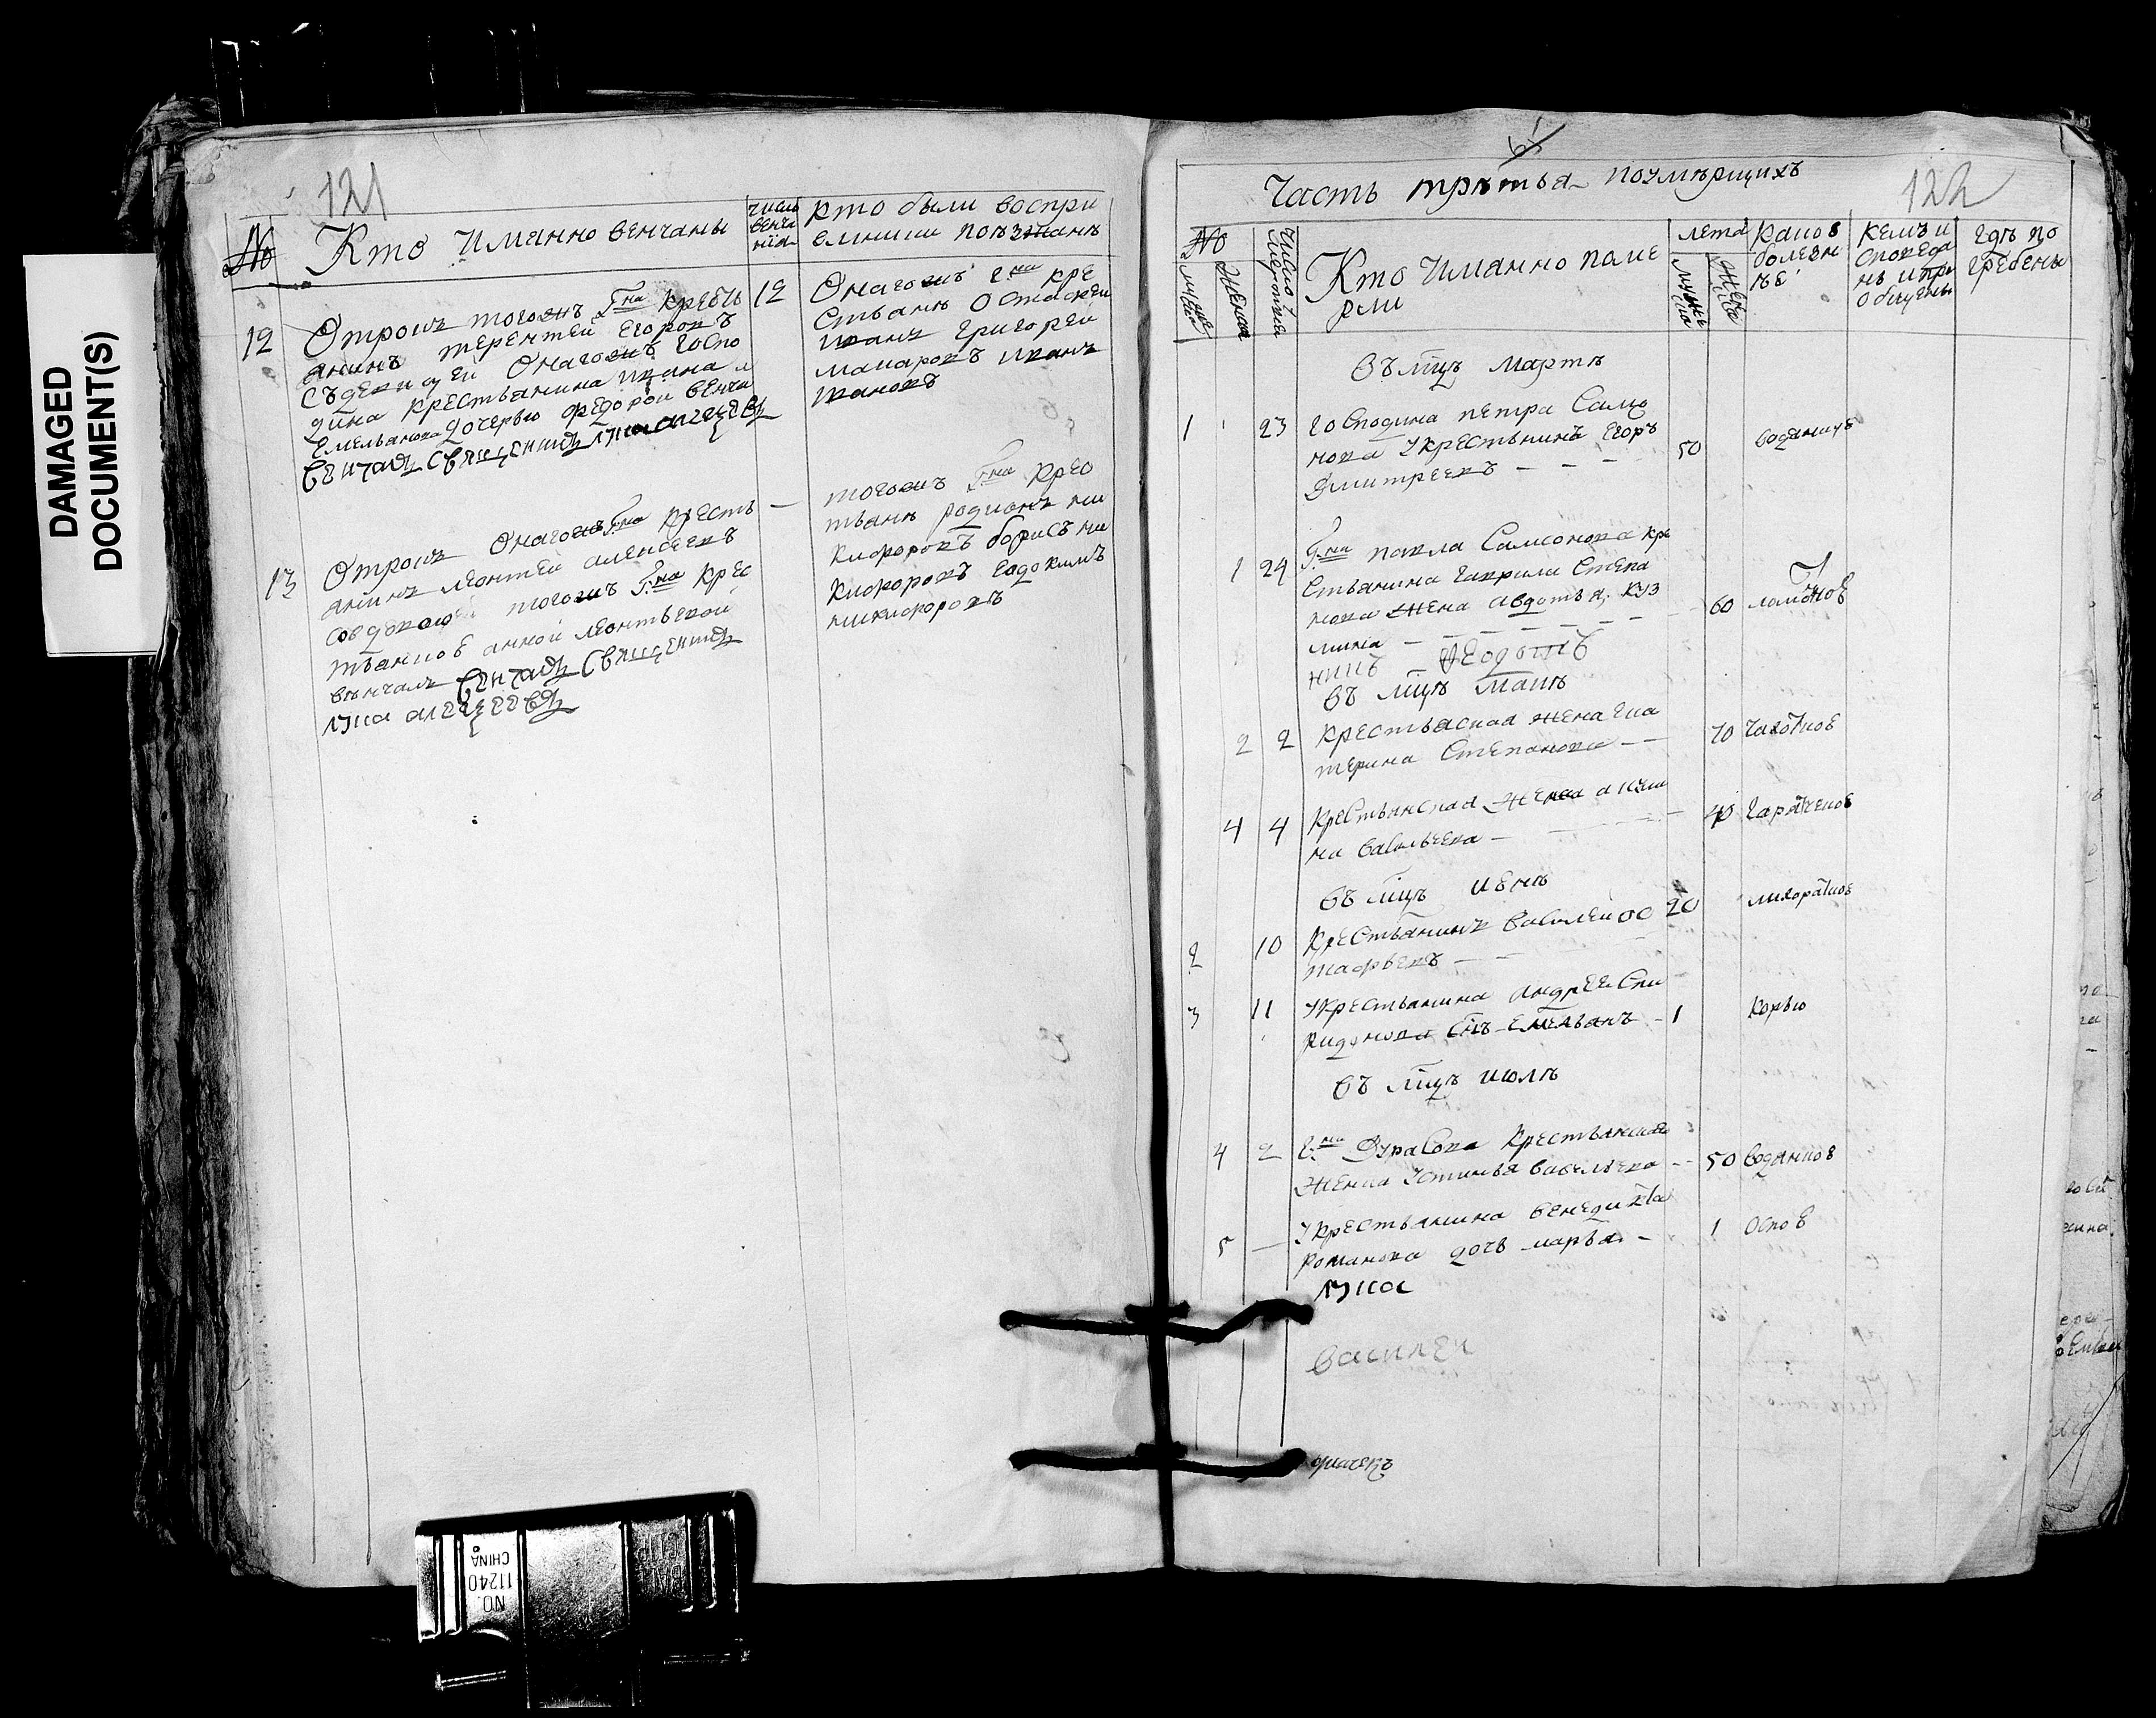 DAMAGED
DOCUMENT(S)
121
№
Кто имянно венчаны
число
венча
нiя
кто были воспри
емники поезжанѣ
12
Отрокъ тогожъ Гна кресть
янинъ терентей Егоровъ
съдевицей Онагожъ госпо
дина крестьянина ивана
Емельянова дочерью федорой венча
Венчалъ Священникъ лука алексеевъ
12
Онагожъ гна кре
стьянѣ
иванъ григорей
макаровъ иванъ
ивановъ
13
Отрокъ Онагожъ Гна кресть
янинъ леонтей алексеевъ
тогожъ Гна крес
тьянкоѣ анной леонтьевой
вѣнчалъ Венчалъ Священникъ
лука алексеевъ
—
тогожъ Гна крес
тьянѣ родионъ ни
кифоровъ борисъ ни
кифоровъ евдокимъ
никифоровъ
65
Часть третья поумѣрщихъ
122
№
мужеска
женска
число
смертiя
Кто имянно поме
рли
лета
мужеска
женска
какоѣ
болезн
ѣе
кемъ и
споведа
нъ и при
общены
гдѣ по
гребены
въ мцѣ мартѣ
1 23
господина петра Самсо
нова Укрестьнина Егоръ
Дмитреевъ — — —
50
водяницѣ
1 24
Гна павла Самсонова кре
стьянина гаврили Степа
нова жена авдотья куз
мина — — — — — —
60 ломотноѣ
въ мцѣ маиѣ
2 2
крестьяская жена ека
терина Степанова — —
70 чахотноѣ
4 4
крестьянская жена акули
на васильева —
40 гарячкоѣ
въ мцѣ июнѣ
2 10
крестьянинъ василей ос
тафьевъ — —
20
лихораткоѣ
3 11
Укрестьянина андрея Спи
ридонова снъ Емельянъ —
1
корью
въ мцѣ июлѣ
4 2
гна Дурасова крестьянская
женка Устинья васильева — —
50 водянкоѣ
5 —
Укрестьянина венедикта
романова дочь марья —
1 Оспоѣ
лука
василеи
NO.
11240
CHINA